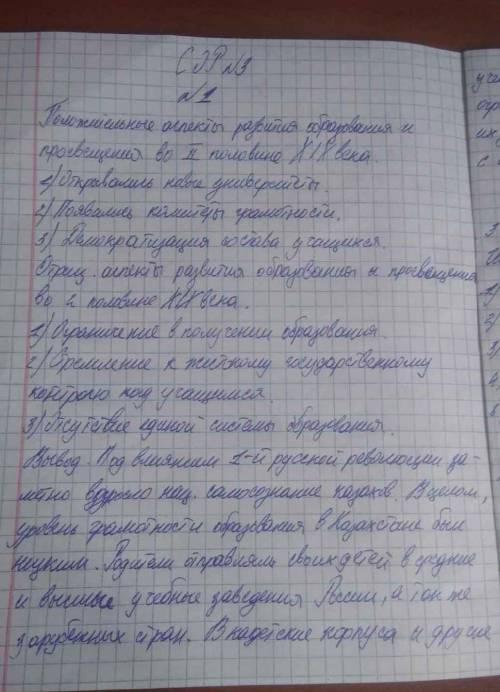 СЭР №3
№1
Положительные аспекты развития образования и
просвещения во II половине XIX века.
1) Открывались новые университеты.
2) Появились комитеты грамотности.
3) Демократизация состава учащихся.
Отриц. аспекты развития образования и просвещения
во 2 половине XIX века.
1) Ограничение в получении образования.
2) Стремление к жёсткому государственному
контролю над учащимися.
3) Отсутствие единой системы образования.
Вывод. Под влиянием 1-й русской революции за-
метно взросло нац. самосознание казахов. В целом,
уровень грамотности образования в Казахстане был
низким. Родители отправляли своих детей в средние
и высшые учебные заведения России, а так же
зарубежных стран. В кадетские корпуса и другие
уче
с
1)
2)
3)